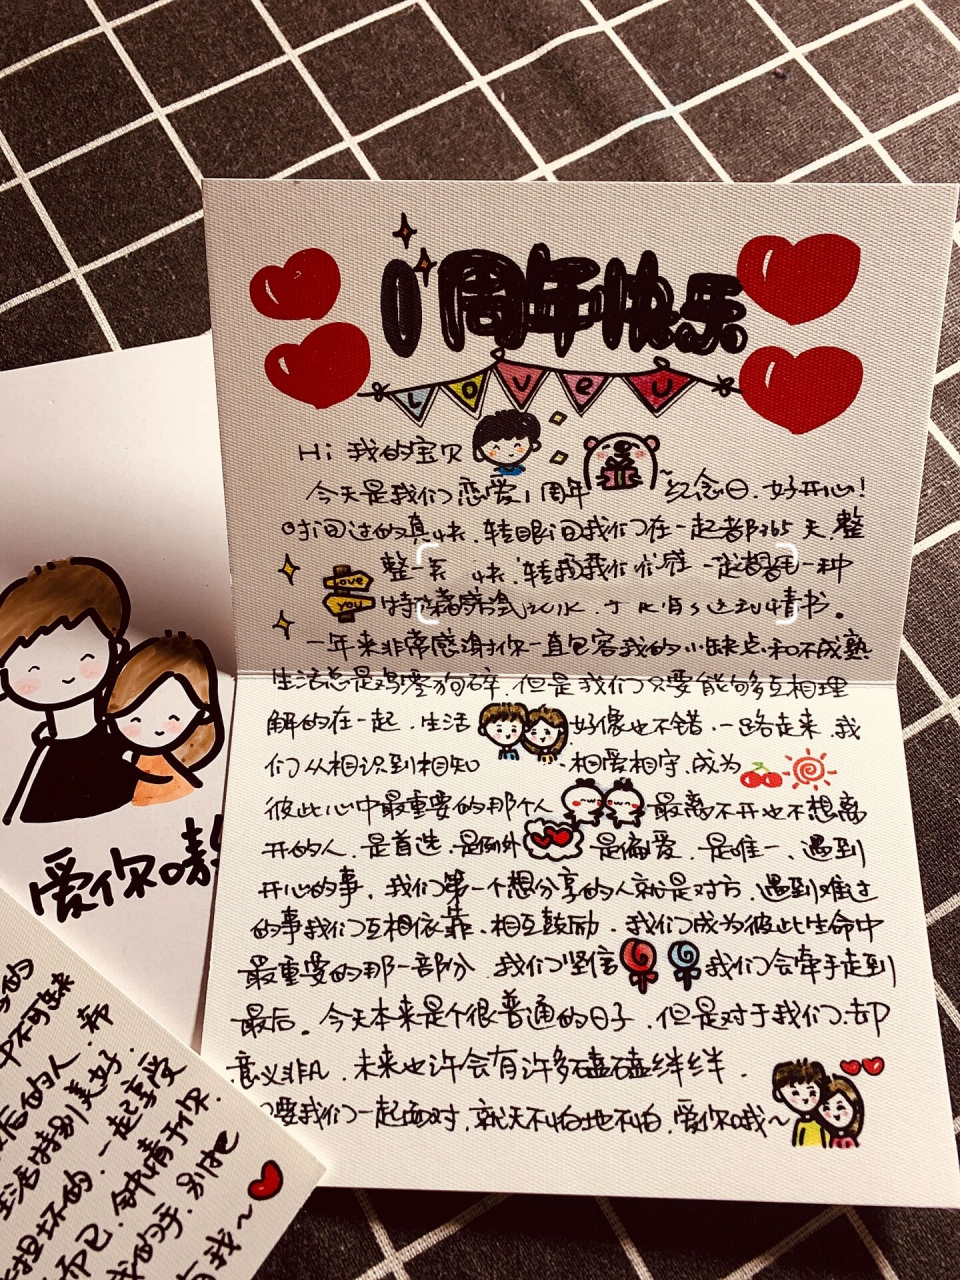 1周年快乐
Love U
Hi 我的宝贝
今天是我们恋爱1周年 纪念日.好开心!
时间过的真快.转眼间我们在一起都365天.整
整 快.转 我们 一起 一种
Love
You
情书。
一年来非常感谢你一直包容我的小缺点和不成熟
生活总是鸡零狗碎.但是我们只要能够互相理
解的在一起.生活 好像也不错.一路走来.我
们从相识到相知 .相爱相守.成为
彼此心中最重要的那个人 最离不开也不想离
开的人.是首选.是例外 是偏爱.是唯一、遇到
开心的事.我们第一个想分享的人就是对方.遇到难过
的事我们互相依靠.相互鼓励.我们成为彼此生命中
最重要的那一部分.我们坚信 我们会牵手走到
最后。今天本来是个很普通的日子.但是对于我们.却
意义非凡.未来也许会有许多磕磕绊绊.
要我们一起面对.就天不怕地不怕.爱你哦~
爱你
的
中不可缺
后的人.希
生活特别美好.
坏的.一起享受
而已.钟情于你.
我的手.别把
我~